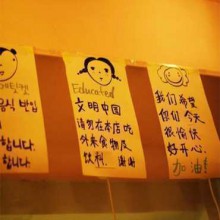 음식 반입
합니다.
합니다.
Educated
文明中国
请勿在本店吃
外来食物及
饮料... 谢谢
我们希望
你们 今天
很愉快
好开心.
加油!